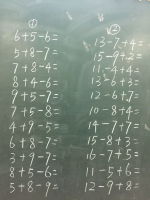 ①
6+5-6=
5+8-7=
7+8-4=
8+4-6=
9+5-7=
7+5-8=
4+9-5=
6+8-7=
3+9-7=
8+6-5=
5+8-9=
②
13-7+4=
15-9+2=
11-4+4=
13-6+3=
12-6+7=
10-8+4=
14-7+7=
15-8+3=
16-7+5=
11-5+6=
12-9+8=